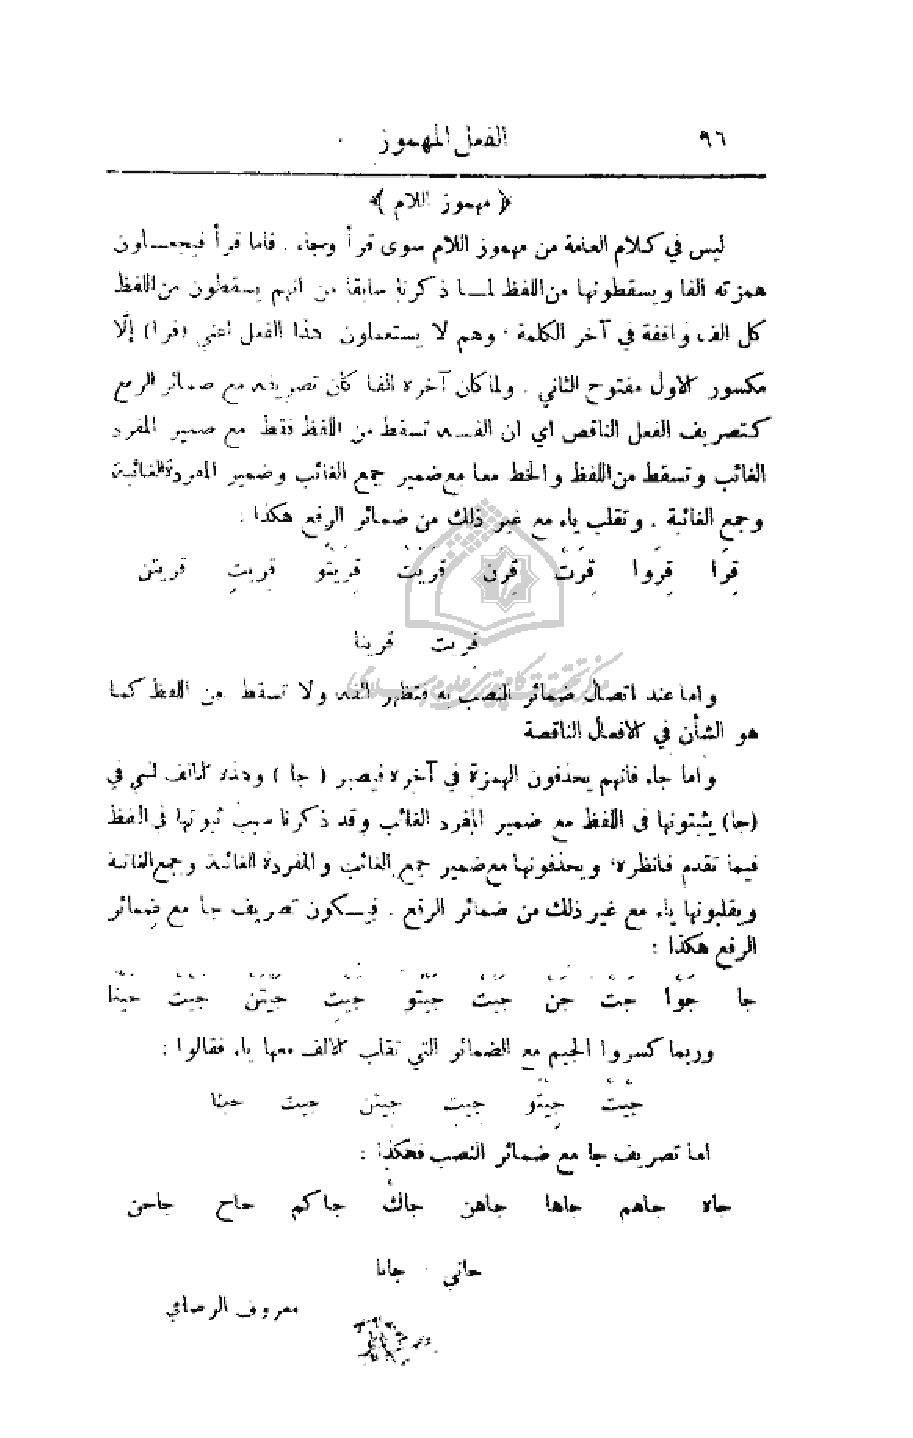 ٩٦ الفعل المهموز
﴿ مهموز اللام ﴾
ليس في كلام العامة من مهموز اللام سوى قرأ وجاء . فاما قرأ فيجعلون
همزته الفا ويسقطونها من اللفظ لما ذكرنا سابقا من انهم يسقطون من اللفظ
كل الف واقفة في آخر الكلمة . وهم لا يستعملون هذا الفعل اعني (قرا) إلّا
مكسور الاول مفتوح الثاني . ولما كان آخره الفا كان تصريفه مع ضمائر الرفع
كتصريف الفعل الناقص اي ان الفه تسقط من اللفظ فقط مع ضمير المفرد
الغائب وتسقط من اللفظ والخط معا مع ضمير جمع الغائب وضمير المفردة الغائبة
وجمع الغائبة . وتقلب ياء مع غير ذلك من ضمائر الرفع هكذا :
قِرَا قِرَوا قِرَتْ قِرن قريَتْ قِرَيْتو قريتِ قريتن
قريت قرينا
واما عند اتصال ضمائر النصب به فتظهر الفه ولا تسقط من اللفظ كما
هو الشأن في الافعال الناقصة
واما جاء فانهم يحذفون الهمزة في آخره فيصير ( جا ) وهذه الالف التي في
(جا) يثبتونها في اللفظ مع ضمير المفرد الغائب وقد ذكرنا سبب ثبوتها في اللفظ
فيما تقدم فانظره . ويحذفونها مع ضمير جمع الغائب والمفردة الغائبة وجمع الغائبة
ويقلبونها ياء مع غير ذلك من ضمائر الرفع . فيكون تصريف جا مع ضمائر
الرفع هكذا :
جا جَوْا جَتْ جَنْ جَيْتْ جَيْتو جَيْتِ جَيْتَنْ جَيْتْ جَيْنا
وربما كسروا الجيم مع الضمائر التي تقلب الالف معها ياء فقالوا :
جِيْتْ جِيْتو جيتِ جيتن جيت جينا
اما تصريف جا مع ضمائر النصب فهكذا :
جاه جاهم جاها جاهن جاك جاكم جاج جاجن
جاني جانا
معروف الرصافي